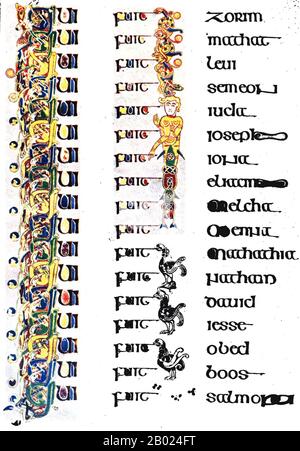 QUI fuit zorim
QUI fuit mathat
QUI fuit leui
QUI fuit semeon
QUI fuit iuda
QUI fuit ioseph
QUI fuit iona
QUI fuit eliacim
QUI fuit melcha
QUI fuit menna
QUI fuit mathathia
QUI fuit nathan
QUI fuit dauid
QUI fuit iesse
QUI fuit obed
QUI fuit boos
QUI fuit salmon
alamy
Image ID: 2B024FT
www.alamy.com